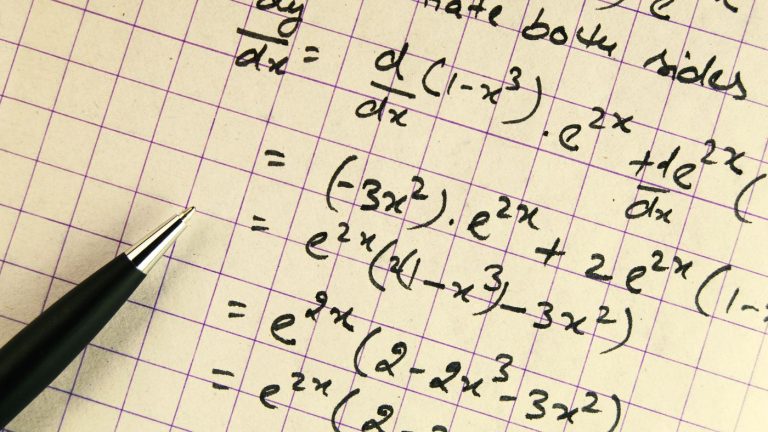 both sides
dy/dx = d/dx (1-x³) . e²ˣ + d/dx e²ˣ (
= (-3x²) . e²ˣ + 2e²ˣ (1-x
= e²ˣ (2(1-x³) - 3x²)
= e²ˣ (2-2x³-3x²)
= e²ˣ (2-2